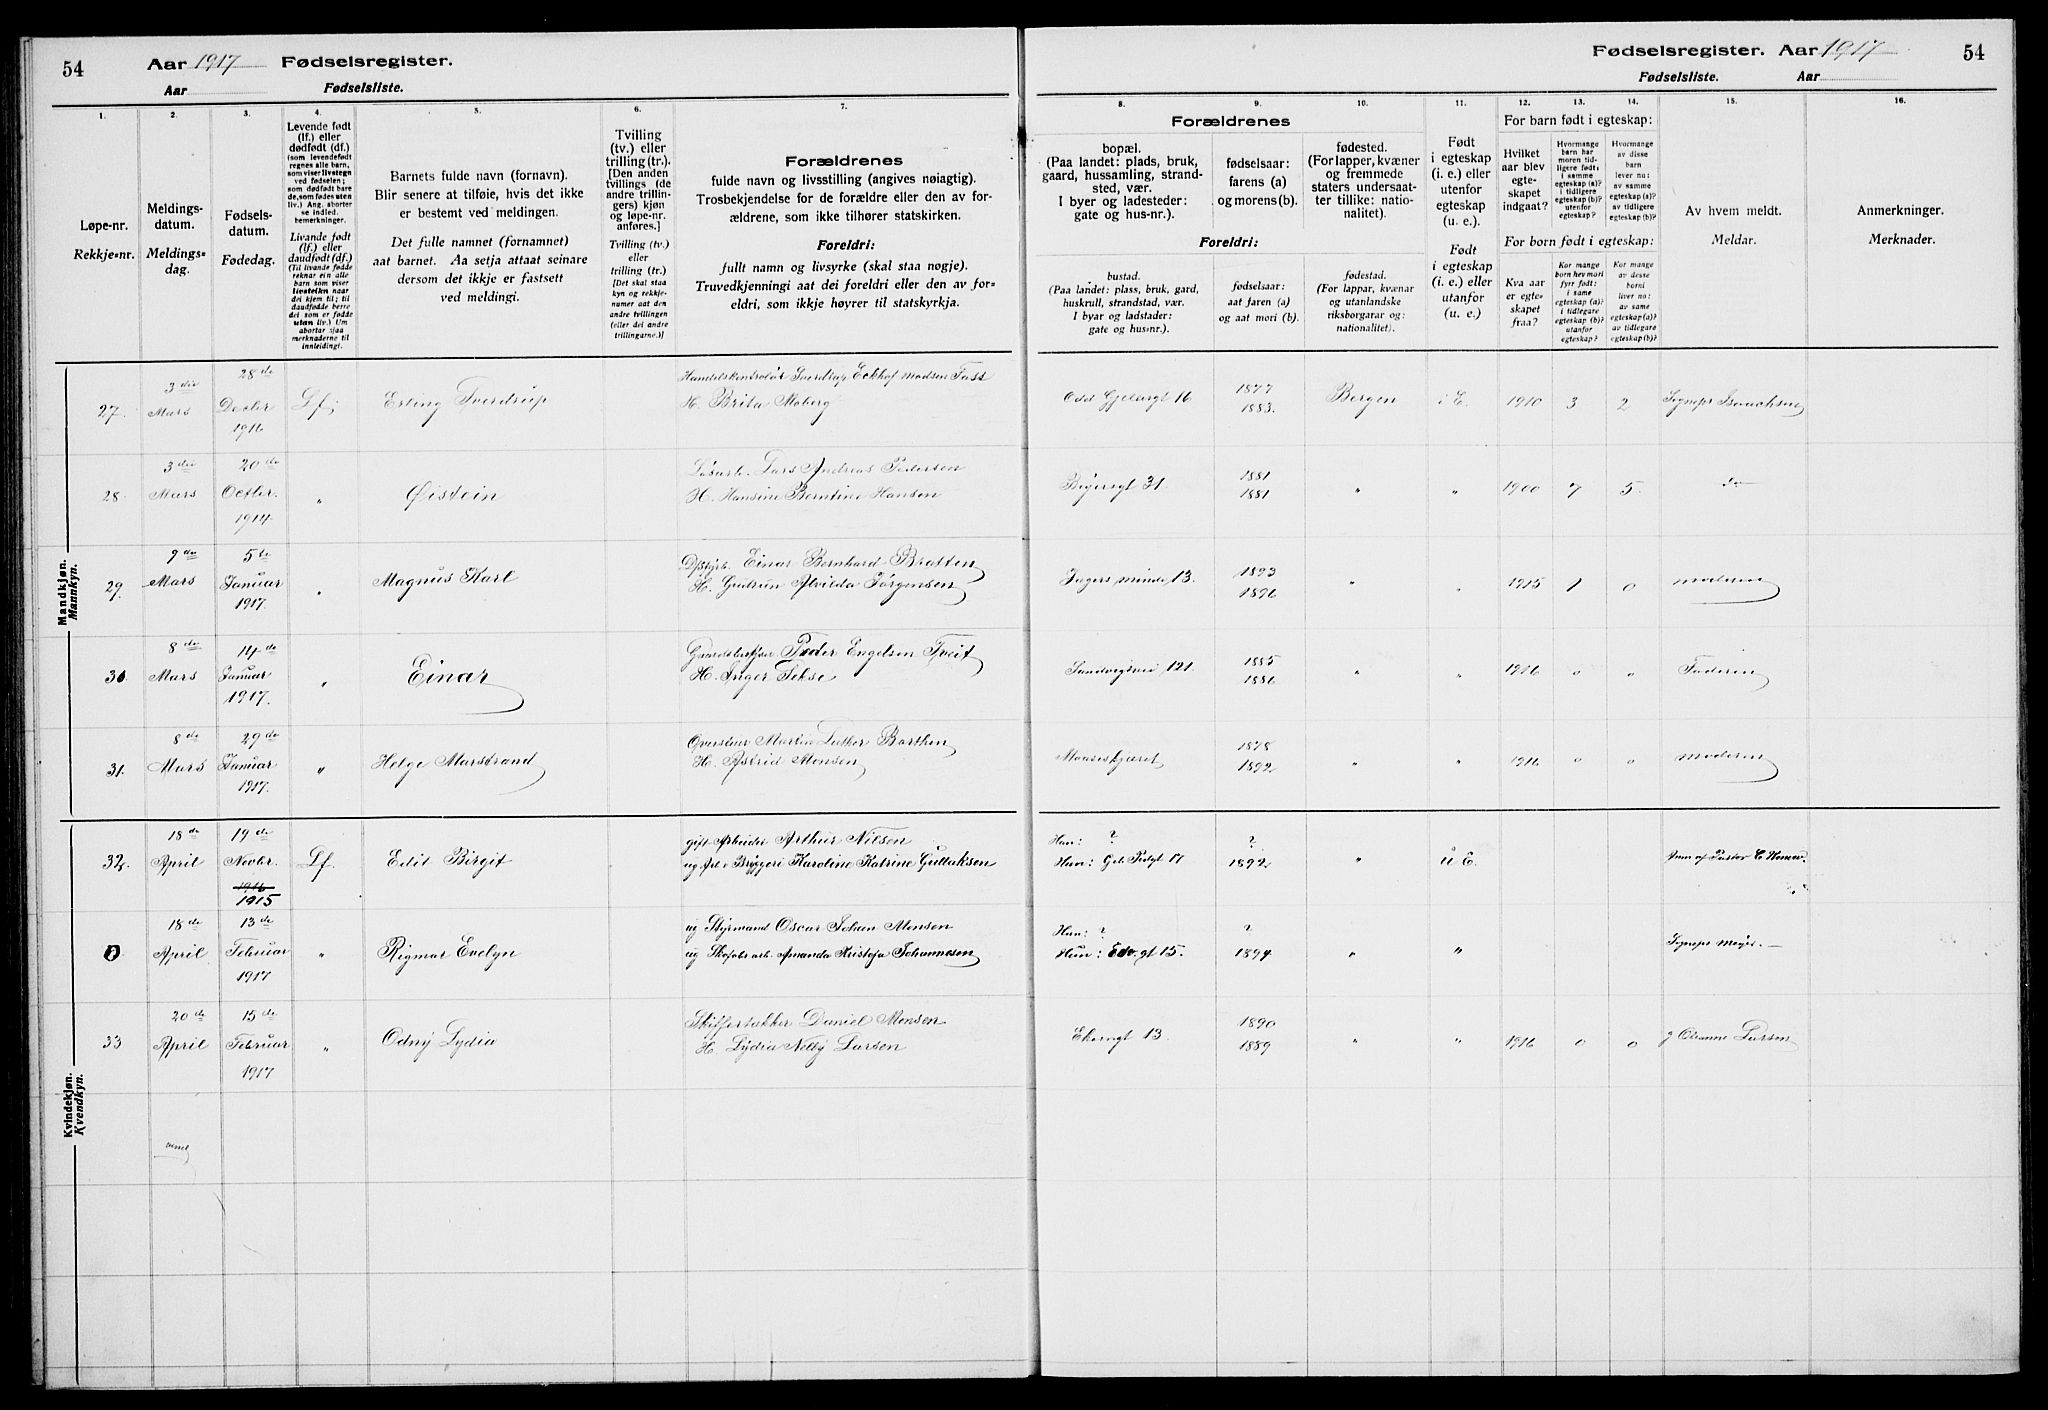 54 Aar 1917 Fødselsregister.
Aar Fødselsliste.
Fødselsregister. Aar 1917 54
Fødselsliste. Aar
1. 2. 3. 4. 5. 6. 7.
Løpe-nr.
Rekkje-nr.
Meldings-
datum.
Meldings-
dag.
Fødsels-
datum.
Fødedag.
Levende født
(lf.) eller
dødfødt (df.)
(som levendefødt
regnes alle barn,
som viser livstegn
ved fødselen;
som dødfødt bare
de, som fødes uten
liv.) Ang. aborter
se indled.
bemerkninger.
Livande født
(lf.) eller
daudfødt (df.)
(Til livande fødde
reknar ein alle
barn som viser
livsteikn naar
dei kjem til; til
daudfødde berre
dei som er fødde
utan liv.) Um
abortar sjaa
merknaderne til
innleidingi.
Barnets fulde navn (fornavn).
Blir senere at tilføie, hvis det ikke
er bestemt ved meldingen.
Det fulle namnet (fornamnet)
aat barnet. Aa setja attaat seinare
dersom det ikkje er fastsett
ved meldingi.
Tvilling
(tv.) eller
trilling (tr.).
[Den anden
tvillings (de
andre trillin-
gers) kjøn
og løpe-nr.
anføres.]
Tvilling (tv.)
eller
trilling (tr.)
[Det skal staa
kyn og rekkje-
numer aat den
andre tvillingen
(eller dei andre
trillingarne.)]
Forældrenes
fulde navn og livsstilling (angives nøiagtig).
Trosbekjendelse for de forældre eller den av for-
ældrene, som ikke tilhører statskirken.
Foreldri:
fullt namn og livsyrke (skal staa nøgje).
Truvedkjenningi aat dei foreldri eller den av for-
eldri, som ikkje høyrer til statskyrkja.
8. 9. 10. 11. 12. 13. 14. 15. 16.
Forældrenes
bopæl.
(Paa landet: plads, bruk,
gaard, hussamling, strand-
sted, vær.
I byer og ladesteder:
gate og hus-nr.).
fødselsaar:
farens (a)
og morens (b).
fødested.
(For lapper, kvæner
og fremmede
staters undersaat-
ter tillike: natio-
nalitet).
Foreldri:
bustad.
(Paa landet: plass, bruk, gard,
huskrull, strandstad, vær.
I byar og ladstader:
gate og hus-nr.).
fødselsaar:
aat faren (a)
og aat mori (b).
fødestad.
(For lappar, kvænar
og utanlandske
riksborgarar og:
nationalitet).
Født
i egteskap
(i. e.) eller
utenfor
egteskap
(u. e.).
Født
i egteskap
(i. e.) eller
utanfor
egteskap
(u. e.)
For barn født i egteskap:
Hvilket
aar blev
egte-
skapet
indgaat?
Hvormange
barn har
moren tid-
ligere født:
i samme
egteskap (a)?
i tidligere
egteskap (b)?
utenfor
egteskap?
Hvormange
av disse
barn
lever nu:
av samme
egteskap (a)?
av tidligere
egteskap (b)?
For born født i egteskap:
Kva aar
er egte-
skapet
fraa?
Kor mange
born hev mori
fyrr født:
i same
egteskap (a)?
i tidlegare
egteskap (b)?
utanfor
egteskap?
Kor mange
av desse
borni
liver no:
av same
egteskap (a)?
av tidlegare
egteskap (b)?
Av hvem meldt.
Meldar.
Anmerkninger.
Merknader.
Mandkjøn.
Mannkyn.
27. 3 die Mars 28 de Decbr 1916 Lf. Erling Sverdrup
Handelskontrolør Sverdrup Eckhof Madsen Fass
H. Brita Moberg
1877 1883. Bergen i E. 1910 3 2 Isachsen
28. 3 die Mars 20 de Octbr. 1914 " Øistein
Løsarb. Lars Andreas Pedersen
H. Hansine Berntine Hansen
31. 1881 1881 " " 1900 7 5. do
29. 9 de Mars 5 te Januar 1917. " Magnus Karl
Einar Bernhard Bratten
H. Gudrun Alvilda Jørgensen
Jægers minde 13. 1893 1896 " " 1915 1 0 moderen
30. 8 de Mars 14 de Januar 1917. " Einar
Peder Engelsen Tveit
H. Inger Tekse
Sandvigsvei 121. 1885 1886 " " 1916 0 " Faderen
31. 8 de Mars 29 de Januar 1917. " Helge Marstrand
Martin Luther Barthen
H. Astrid Monsen
Maaseskjæret 1878 1892 " " 1916 0 0 moderen
Kvindekjøn.
Kvendkyn.
32. 18 de April 19 de Novbr. 1916 1915 Lf. Edit Birgit
gift Arbeider Arthur Nilsen
ug Arb. Bryggeri Karoline Katrine Gullaksen
Han: ? ?
Hun: 17 1892 " u E.
0 18 de April 13 de Februar 1917 " Rigmor Evelyn
ug Styrmand Oscar Johan Monsen
ug Skofabr arb. Amanda Kristofa Johannesen
Han: ? ?
Hun: Edv. gt 15. 1894 " " Meyer
33 20 de April 15 de Februar 1917 " Odny Lydia
Skiffertækker Daniel Monsen
H. Lydia Nelly Larsen
Ekervgt 13. 1890 1889 " " 1916 0 0 J Oleanne Larsen